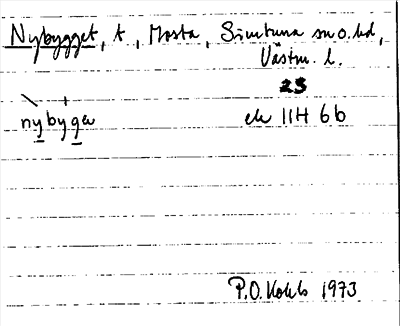 Nybygget, t, Mosta, Simtuna sn o. hd,
Västm. l.
23
nybyga ek 11H 6b
P.O. 1973